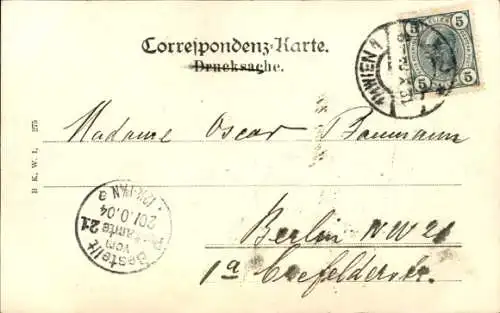 Correspondenz-Karte.
Drucksache.
5 5
5 5
1/1 WIEN 1
B. K. W. I. 275
Madame Oscar Baumann
Berlin NW 21
1a Crefelderstr.
Bestellt
vom
Postamte 21
20.10.04